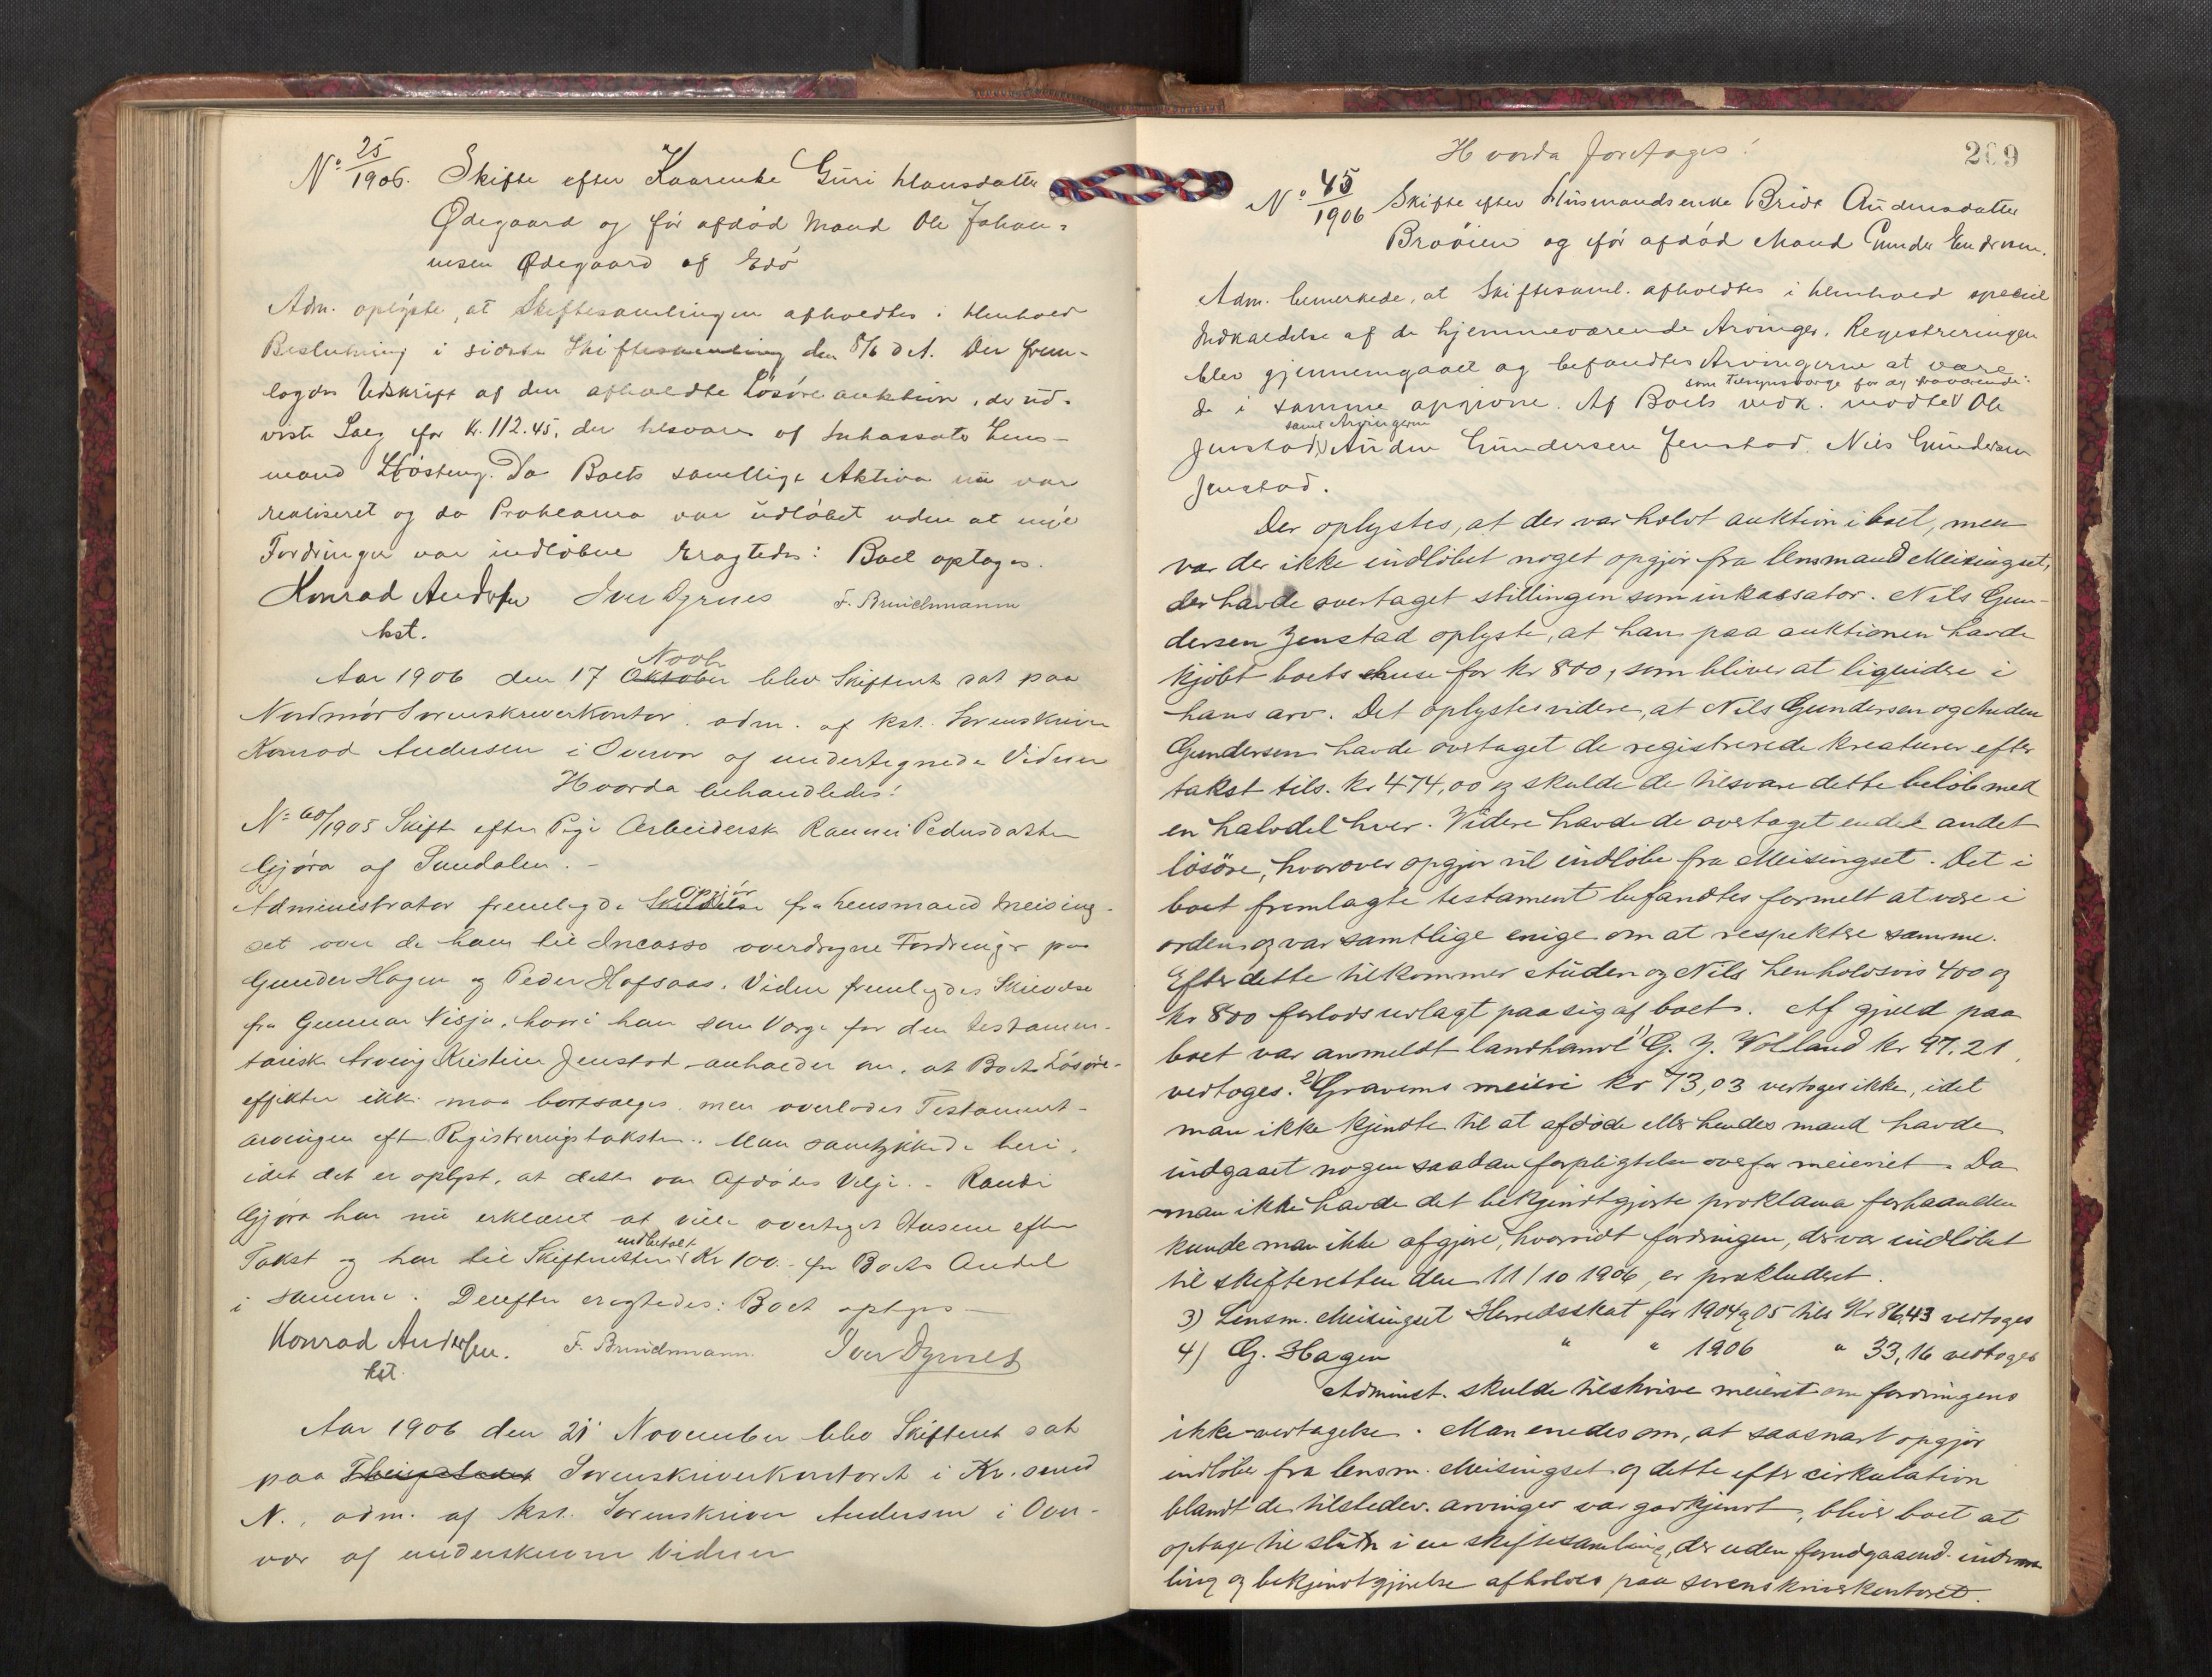 No 25/1906. Skifte efter Kaarenke Guri Hansdatter
Ødegaard og før afdød Mand Ole Johan-
nesen Ødegaard af Edø
Adm. oplyste, at Skiftesamlingen afholdtes i Henhold
Beslutning i sidste Skiftesamling den 8/6 d.A. Der frem-
lagdes Udskrift af den afholdte Løsøreauktion, der ud-
viste Salg for Kr. 112.45, der tilsvares af Inkassator Lens-
mand Høsteng. Da Boets samtlige Aktiva nu var
realiseret og da Proklama var udløbet uden at nye
Fordringer var indløbne eragtedes: Boet optages.
Konrad Andersen Iver Dyrnes F. Brinchmann
kst.
Aar 1906 den 17 Oktober Novbr blev Skifteret sat paa
Nordmør Sorenskriverkontor. adm. af kst. Sorenskriver
Konrad Andersen i Overvær af undertegnede Vidner
Hvorda behandledes:
No 60/1905 Skifte efter Pige Arbeiderske Raunei Pedersdatter
Gjøra af Sundalen. -
Administrator fremlagde Skrivelse Opgjør fra Lensmand Meising-
set over de ham til Incasso overdragne Fordringer paa
Gunder Hagen og Peder Hafsaas. Videre fremlagdes Skrivelse
fra Gunnar Nisja, hvori han som Værge for den testamen-
tariske Arving Kristine Jenstad anholder om, at Boets Løsøre-
effekter ikke maa bortsælges, men overlades Testament-
arvingen efter Registreringstaksten. Man samtykkede heri,
idet det er oplyst, at dette var Afdødes Vilje. - Randi
Gjøra har nu erklæret at ville overtaget Husene efter
Takst og har til Skifteretten indbetalt Kr 100.- for Boets Andel
i samme. Derefter eragtedes: Boet optages
Konrad Andersen. F. Brinchmann. Iver Dyrnes
kst.
Aar 1906 den 21 November blev Skifteret sat
paa Sorenskriverkontoret i Kr.sund
N., adm. af kst. Sorenskriver Andersen i Over-
vær af underskrevne Vidner
Hvorda foretages:
269
No 45/1906 Skifte efter Husmandsenke Bride Andersdatter
Brøøien og før afdød Mand Gunder Endresen.
Adm. bemerkede, at Skiftesaml. afholdtes i Henhold speciel
Indkaldelse af de hjemmeværende Arvinger. Registreringen
blev gjennemgaaet og befandtes Arvingerne at være
som Tilsynsværge for de fraværende:
de i samme opgivne. Af Boets vedk. mødte Ole
samt Arvingerne
Jenstad, Auden Gundersen Jenstad, Nils Gundersen
Jenstad.
Der oplystes, at der var holdt auktion i boet, men
var der ikke indløbet noget opgjør fra lensmand Meisingset,
der havde overtaget stillingen som inkassator. Nils Gun-
dersen Jenstad oplyste, at han paa auktionen havde
kjøbt boets huse for kr 800, som bliver at liquidere i
hans arv. Det oplystes videre, at Nils Gundersen og Auden
Gundersen havde overtaget de registrerede kreaturer efter
takst tils. kr 474,00 og skulde de tilsvare dette beløb med
en halvdel hver. Videre havde de overtaget endel andet
løsøre, hvorover opgjør vil indløbe fra Meisingset. Det i
boet fremlagte testament befandtes formelt at være i
orden og var samtlige enige om at respektere samme.
Efter dette tilkommer Auden og Nils henholdsvis 400 og
kr 800 forlods udlagt paa sig af boet. Af gjeld paa
boet var anmeldt landhandl. 1) G. J. Volland kr 97.21,
vedtoges. 2) Gravems meieri kr 73,03 vedtoges ikke, idet
man ikke kjendte til at afdøde eller hendes mand havde
indgaaet nogen saadan forpligtelse overfor meieriet. Da
man ikke havde det bekjendtgjorte proklama forhaanden
kunde man ikke afgjøre, hvorvidt fordringen, der var indløbet
til skifteretten den 11/10 1906, er prækluderet.
3) Lensm. Meisingset Herredsskat for 1904 og 05 tils Kr 86,43 vedtoges
4) G. Hagen " " 1906 " 33,16 vedtoges
Administ. skulde tilskrive meieriet om fordringens
ikke-vedtagelse. Man enedes om, at saasnart opgjør
indløber fra lensm. Meisingset og dette efter cirkulation
blandt de tilstedev. arvinger var godkjendt, bliver boet at
optage til slutn i en skiftesamling, der uden forudgaaend. indvars-
ling og bekjendtgjørelse afholdes paa sorenskriverkontoret.